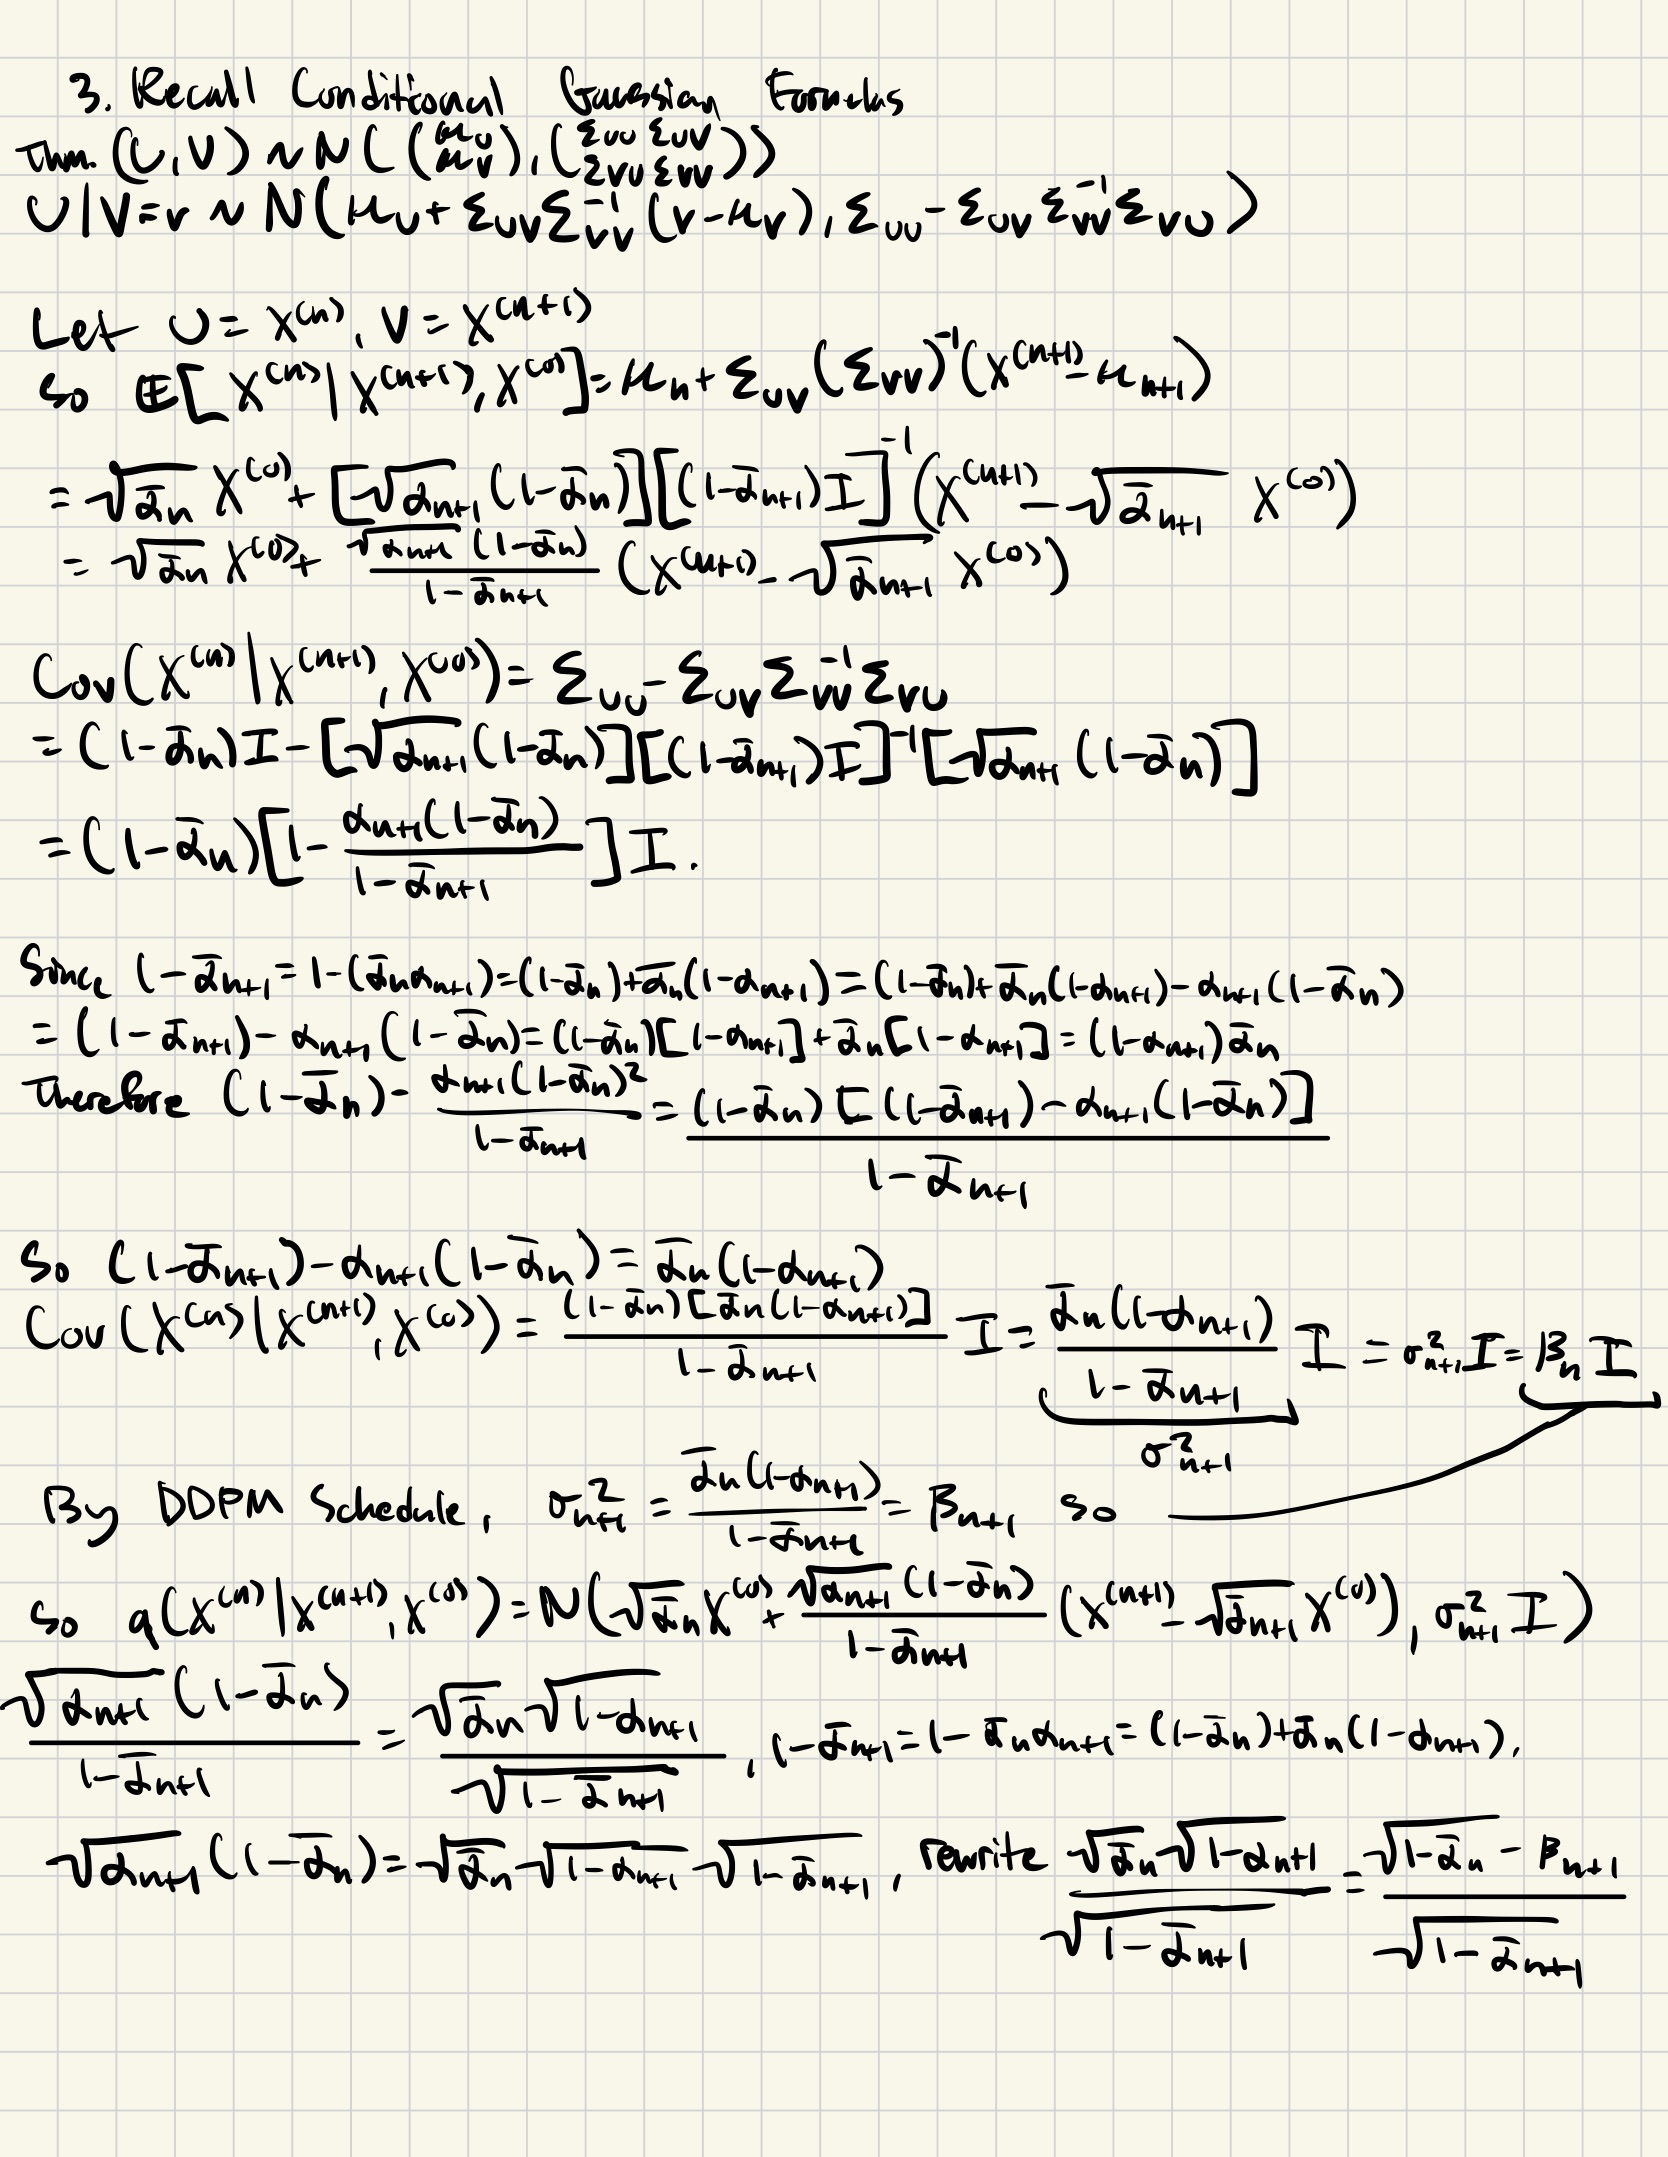 3. Recall Conditional Gaussian Formulas
Thm. (U,V) ~ N( (μ_U μ_V), (Σ_UU Σ_UV Σ_VU Σ_VV))
U|V=v ~ N(μ_U + Σ_UV Σ_VV^{-1} (v-μ_V), Σ_UU - Σ_UV Σ_VV^{-1} Σ_VU)
Let U = X^{(n)}, V = X^{(n+1)}
So E[X^{(n)} | X^{(n+1)}, X^{(0)}] = μ_n + Σ_UV (Σ_VV)^{-1} (X^{(n+1)} - μ_{n+1})
= √ᾱ_n X^{(0)} + [√α_{n+1} (1-ᾱ_n)][(1-ᾱ_{n+1})I]^{-1} (X^{(n+1)} - √ᾱ_{n+1} X^{(0)})
= √ᾱ_n X^{(0)} + \frac{√α_{n+1} (1-ᾱ_n)}{1-ᾱ_{n+1}} (X^{(n+1)} - √ᾱ_{n+1} X^{(0)})
Cov(X^{(n)} | X^{(n+1)}, X^{(0)}) = Σ_UU - Σ_UV Σ_VV^{-1} Σ_VU
= (1-ᾱ_n)I - [√α_{n+1} (1-ᾱ_n)][(1-ᾱ_{n+1})I]^{-1} [√α_{n+1} (1-ᾱ_n)]
= (1-ᾱ_n)[1 - \frac{α_{n+1}(1-ᾱ_n)}{1-ᾱ_{n+1}}] I.
Since 1-ᾱ_{n+1} = 1-(ᾱ_n α_{n+1}) = (1-ᾱ_n)+ᾱ_n(1-α_{n+1}) = (1-ᾱ_n)+ᾱ_n(1-α_{n+1}) - α_{n+1}(1-ᾱ_n)
= (1-ᾱ_{n+1}) - α_{n+1} (1-ᾱ_n) = (1-ᾱ_n)[1-α_{n+1}] + ᾱ_n[1-α_{n+1}] = (1-α_{n+1})ᾱ_n
Therefore (1-ᾱ_n) - \frac{α_{n+1}(1-ᾱ_n)^2}{1-ᾱ_{n+1}} = \frac{(1-ᾱ_n) [(1-ᾱ_{n+1}) - α_{n+1}(1-ᾱ_n)]}{1-ᾱ_{n+1}}
So (1-ᾱ_{n+1}) - α_{n+1}(1-ᾱ_n) = ᾱ_n(1-α_{n+1})
Cov(X^{(n)} | X^{(n+1)}, X^{(0)}) = \frac{(1-ᾱ_n)[ᾱ_n(1-α_{n+1})]}{1-ᾱ_{n+1}} I = \frac{ᾱ_n(1-α_{n+1})}{1-ᾱ_{n+1}} I = σ²_{n+1} I = β_n I
σ²_{n+1}
By DDPM Schedule, σ²_{n+1} = \frac{ᾱ_n(1-α_{n+1})}{1-ᾱ_{n+1}} = β_{n+1} so
So q(X^{(n)} | X^{(n+1)}, X^{(0)}) = N(√ᾱ_n X^{(0)} + \frac{√α_{n+1} (1-ᾱ_n)}{1-ᾱ_{n+1}} (X^{(n+1)} - √ᾱ_{n+1} X^{(0)}), σ²_{n+1} I)
\frac{√α_{n+1} (1-ᾱ_n)}{1-ᾱ_{n+1}} = \frac{√ᾱ_n √1-α_{n+1}}{√1-ᾱ_{n+1}}, 1-ᾱ_{n+1} = 1-ᾱ_n α_{n+1} = (1-ᾱ_n)+ᾱ_n(1-α_{n+1}),
√α_{n+1} (1-ᾱ_n) = √ᾱ_n √1-α_{n+1} √1-ᾱ_{n+1}, rewrite \frac{√ᾱ_n √1-α_{n+1}}{√1-ᾱ_{n+1}} = \frac{√1-ᾱ_n - β_{n+1}}{√1-ᾱ_{n+1}}